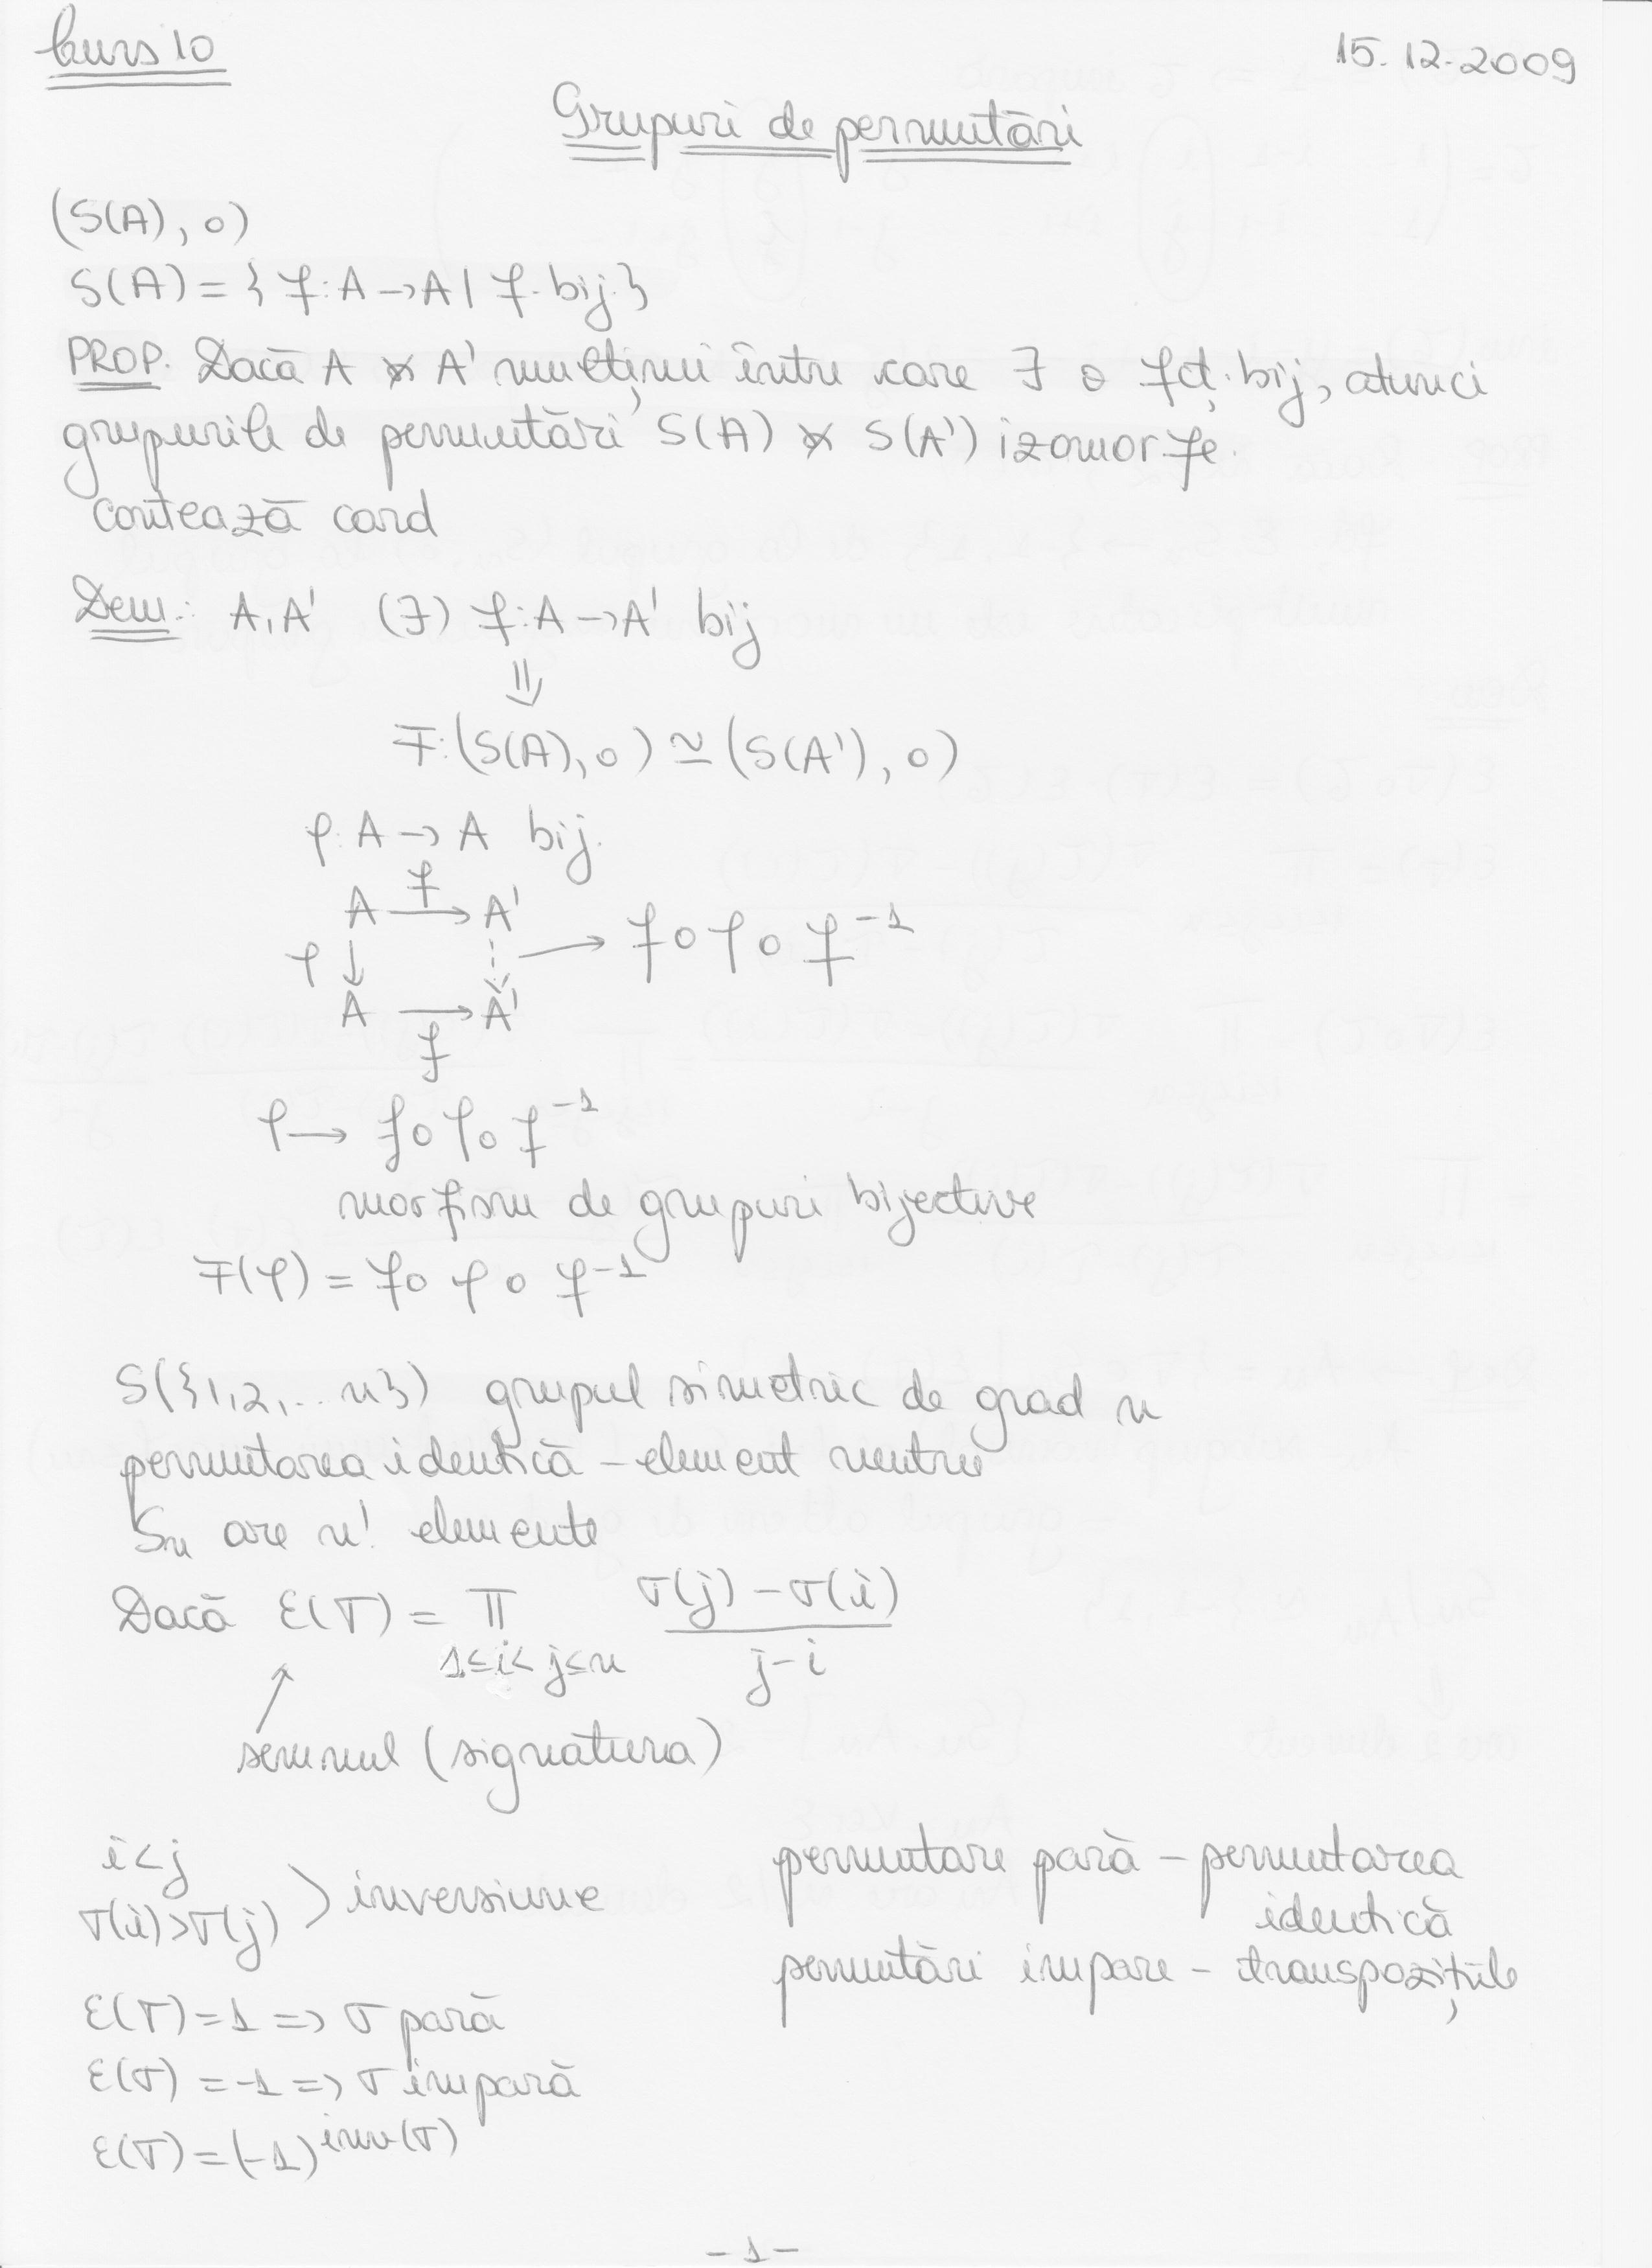 Curs 10
15.12.2009
Grupuri de permutări
(S(A), ∘)
S(A) = { f: A → A | f. bij. }
PROP. Dacă A și A' mulțimi între care ∃ o fct. bij, atunci
grupurile de permutări S(A) și S(A') izomorfe.
contează card
Dem.: A, A' (∃) f: A → A' bij
⇓
F: (S(A), ∘) ≃ (S(A'), ∘)
φ: A → A bij.
f
A → A'
φ ↓ ⇣ → f ∘ φ ∘ f⁻¹
A → A'
f
φ → f ∘ φ ∘ f⁻¹
morfism de grupuri bijective
F(φ) = f ∘ φ ∘ f⁻¹
S({1, 2, ... n}) grupul simetric de grad n
permutarea identică – element neutru
Sₙ are n! elemente
Dacă ε(σ) = ∏ σ(j) – σ(i)
1≤i<j≤n j – i
↗
semnul (signatura)
i < j
σ(i) > σ(j) > inversiune
permutare pară – permutarea
identică
permutări impare – transpozițiile
ε(σ) = 1 => σ pară
ε(σ) = -1 => σ impară
ε(σ) = (-1)^inv(σ)
- 1 -